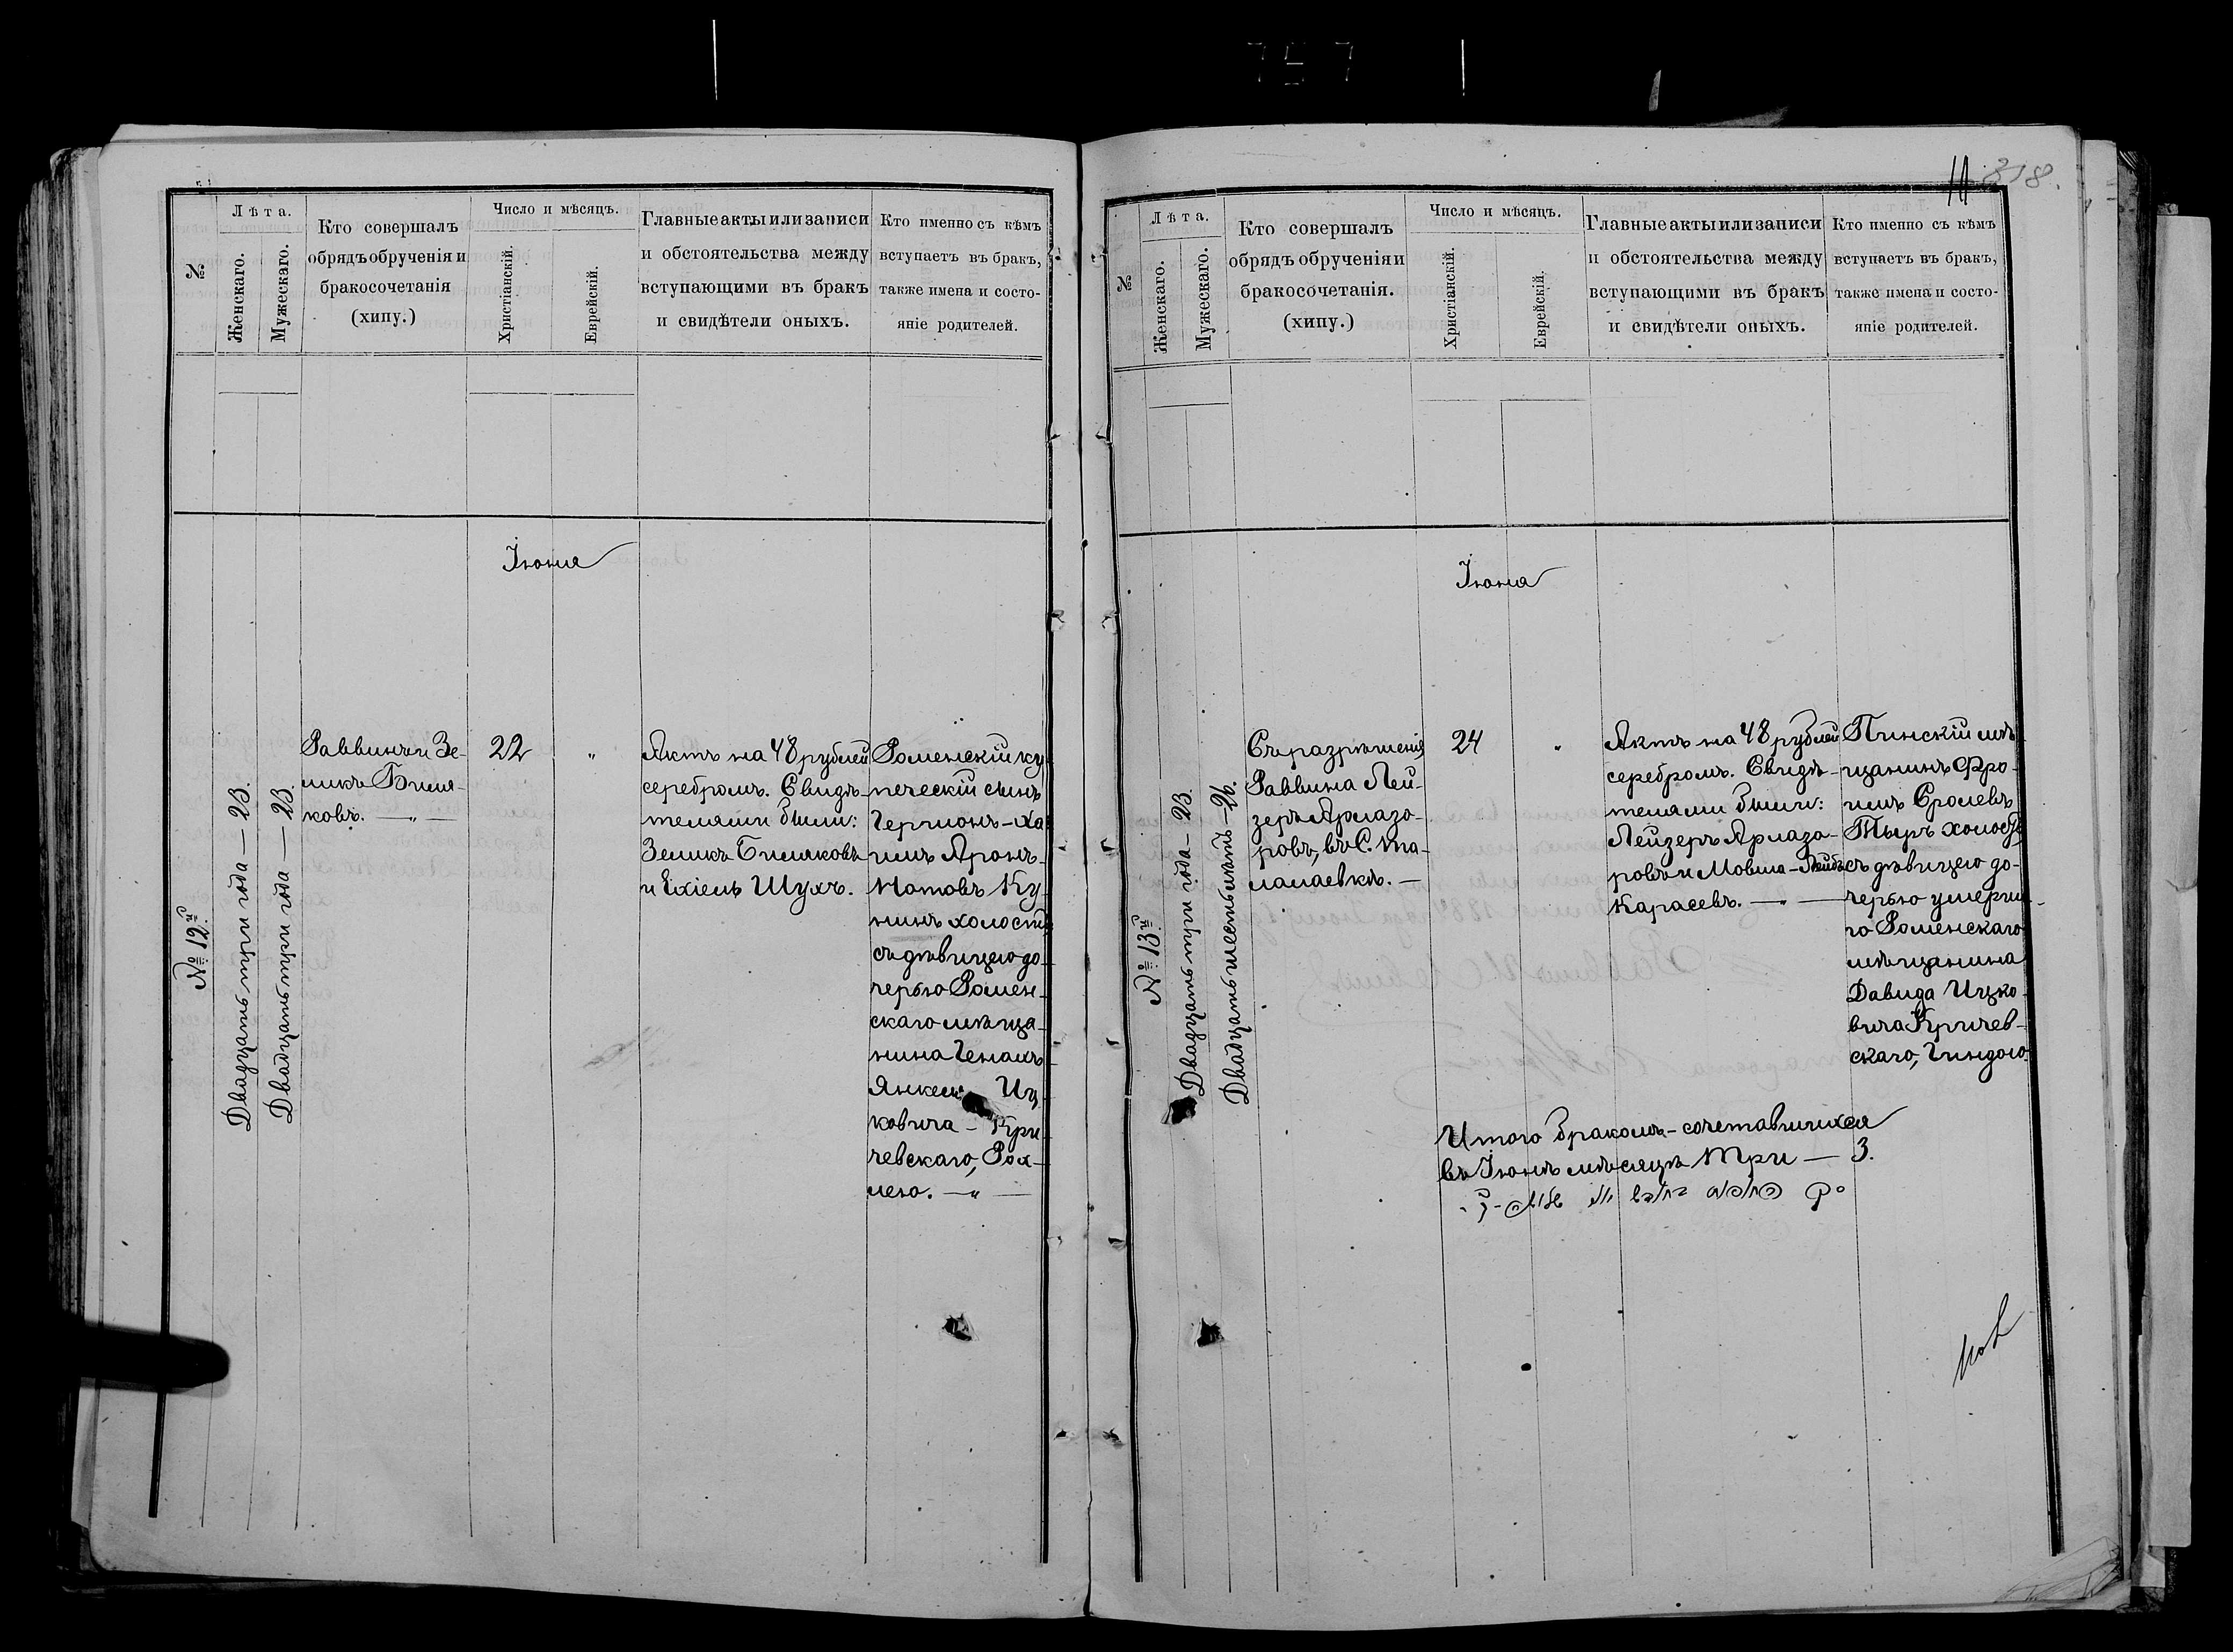 757
№
Лѣта.
Женскаго.
Мужескаго.
Кто совершалъ
обрядъ обрученія и
бракосочетанія
(хипу.)
Число и мѣсяцъ.
Христіанскій.
Еврейскій.
Главные акты или записи
и обстоятельства между
вступающими въ бракъ
и свидѣтели оныхъ.
Кто именно съ кѣмъ
вступаетъ въ бракъ,
также имена и состо-
яніе родителей.
Іюня
№ 12й
Двадцать три года — 23.
Двадцать три года — 23.
Раввинъ и Зе-
ликъ Биля-
ковъ. —„—
22
„
Актъ на 48 рублей
серебромъ. Свидѣ-
телями были:
Зеликъ Биляковъ
и Іхіель Шухъ.
Роменскій ку
печескій сынъ
Гершонъ-Ха
имъ Аронъ-
Нотовъ Ку-
нинъ холостъ
съ дѣвицею до-
черью Ромен-
скаго мѣща-
нина Генахъ
Янкеля Иц-
ковича-Кри-
чевскаго, Рох-
лею. —„—
10 318.
№
Лѣта.
Женскаго.
Мужескаго.
Кто совершалъ
обрядъ обрученія и
бракосочетанія.
(хипу.)
Число и мѣсяцъ.
Христіанскій.
Еврейскій.
Главные акты или записи
и обстоятельства между
вступающими въ бракъ
и свидѣтели оныхъ.
Кто именно съ кѣмъ
вступаетъ въ бракъ,
также имена и состо-
яніе родителей.
Іюня
№ 13й
Двадцать три года — 23.
Двадцать шесть лѣтъ — 26.
Съ разрѣшенія
Раввина Лей-
зеръ Армазо-
ровъ, въ С. Та-
лалаевкѣ. —
24
„
Актъ на 48 рублей
серебромъ. Свидѣ-
телями были:
Лейзеръ Армазо-
ровъ и Мовша-Лейбъ
Карасевъ. —„—
Пинскій мѣ-
щанинъ Фро-
имъ Сролевъ
Тыръ холостъ
съ дѣвицею до-
черью умерша-
го Роменскаго
мѣщанина
Давида Ицко-
вича Кричев-
скаго, Гиндою
Итого бракомъ-сочетавшихся
въ Іюнѣ мѣсяцѣ три — 3.